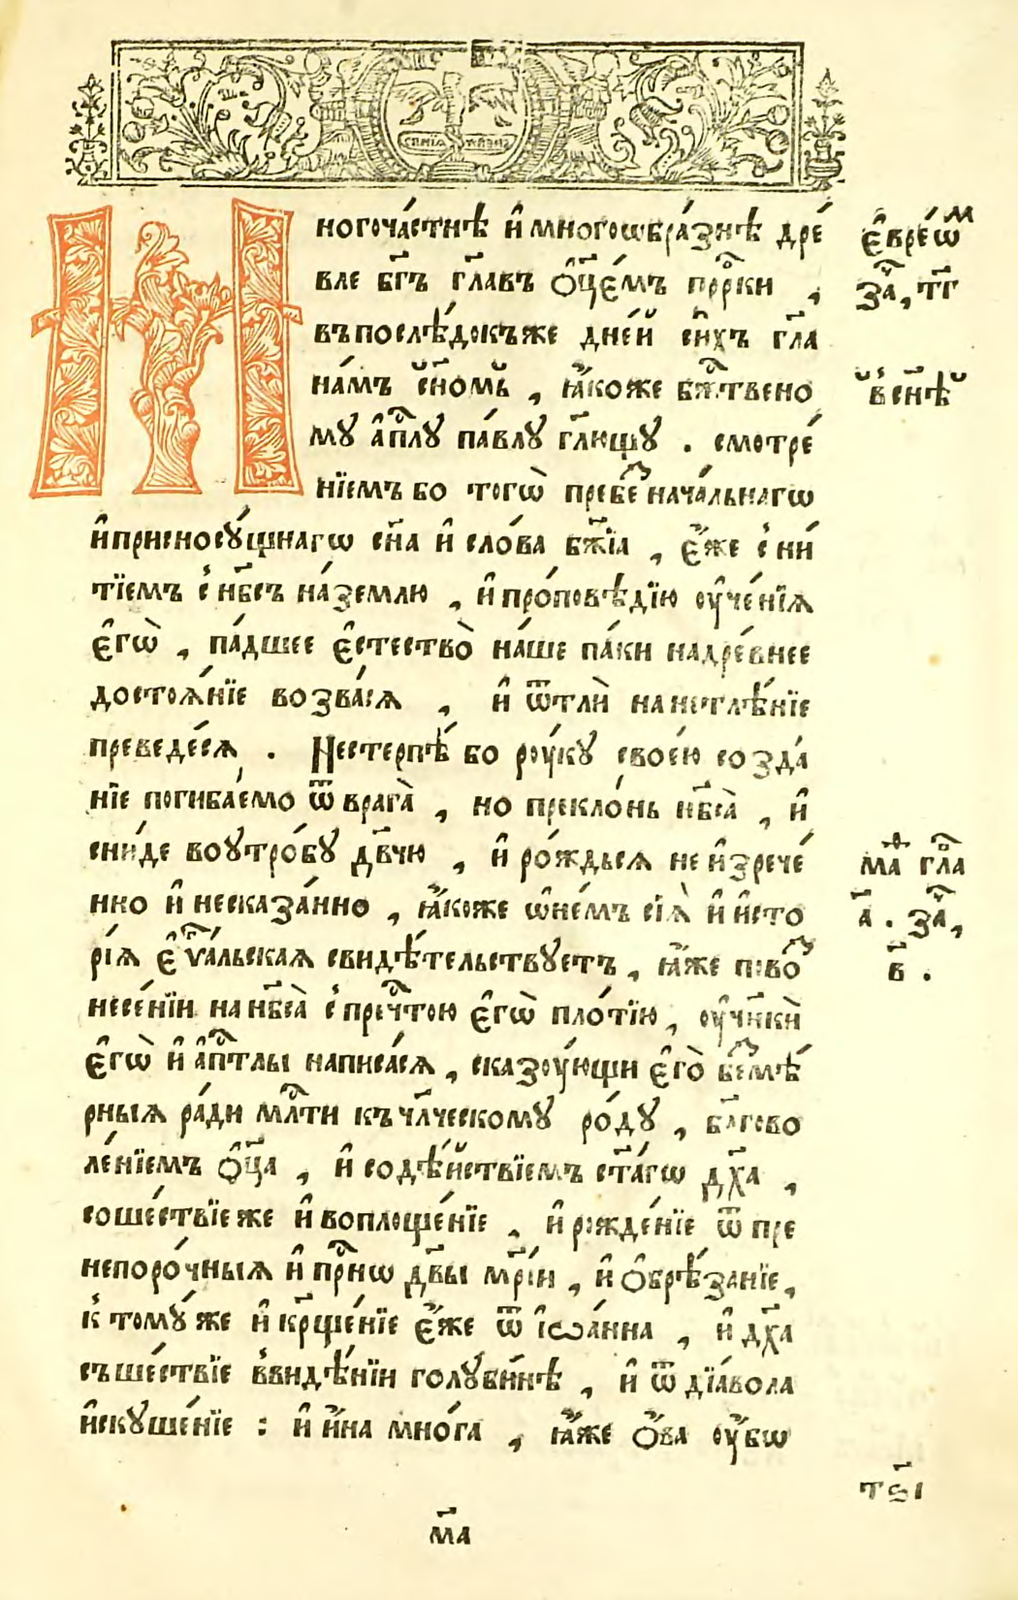 Многоча́стнѣ и҆ многоѡбра́знѣ дре́
вле бг҃ъ гл҃авъ ѻ҆ц҃е́мъ прⷪ҇рки ,
въпослѣ́докъже дне́й си́хъ гл҃а
на́мъ ѡ҆ сн҃ѣ , ꙗ҆́коже бжⷭ҇твено
му а҆пⷭ҇лу па́влу гл҃ющу . смотре́
нїемъ бо тогѡ̀ пребезнача́льнагѡ
и҆присносꙋ́щнагѡ сн҃а и҆ сло́ва бж҃їа , є҆́же сни
тїемъ с нб҃съ на́землю , и҆ про́повѣдїю ᲂу҆че́нїѧ
є҆гѡ̀ , па́дшее є҆стество̀ на́ше па́ки надре́внее
достоѧ́нїе возва́сѧ , и҆ ѿтлѝ на нетлѣ́нїе
преведе́сѧ . Нестерпѣ́ бо рᲂу́ку свое́ю созда́
нїе погиба́емо ѿ врага̀ , но прекло́нь нб҃са̀ , и҆
сни́де воᲂутро́бꙋ дв҃чю , и҆ ро́ждьсѧ не и҆зрече́
нно и҆ несказа́нно , ꙗ҆́коже ѡ҆не́мъ сїѧ̀ и҆ и҆сто
рїѧ є҆ѵⷢ҇альскаѧ свидѣ́тельствꙋетъ , ꙗ҆́же повоз
несе́нїи на нб҃са̀ с пречⷭ҇тою є҆гѡ̀ пло́тїю , ᲂу҆чн҃кѝ
є҆гѡ̀ и҆ а҆пⷭ҇тлы написа́сѧ , сказᲂу́ющи є҆го̀ безмѣ́
рныѧ ра́ди млⷭ҇ти къ чл҃ческомꙋ ро́дꙋ , бл҃гово
ле́нїемъ ѻ҆ц҃а , и҆ содѣ́йствїемъ ст҃а́гѡ дх҃а ,
соше́ствїе же и҆ воплоще́нїе , и҆ рожде́нїе ѿ пре
непоро́чныѧ и҆ прⷭ҇нѡ дв҃ы мр҃і́и , и҆ ѻ҆брѣ́занїе ,
к томꙋ́ же и҆ кр҃ще́нїе є҆́же ѿ і҆ѡа́нна , и҆ дх҃а
съше́ствїе ввидѣ́нїи голꙋби́нѣ , и҆ ѿ дїа́вола
и҆скꙋше́нїе : и҆ и҆́на мно́га , ꙗ҆́же ѻ҆́ва ᲂу҆́бѡ
є҆вре́ѡⷨ
заⷱ҇ , т҃г
в сн҃ѣ
маⷴ глⷡ҇а
а҃ . заⷱ҇ ,
в҃ .
тѕ҃і
м҃а